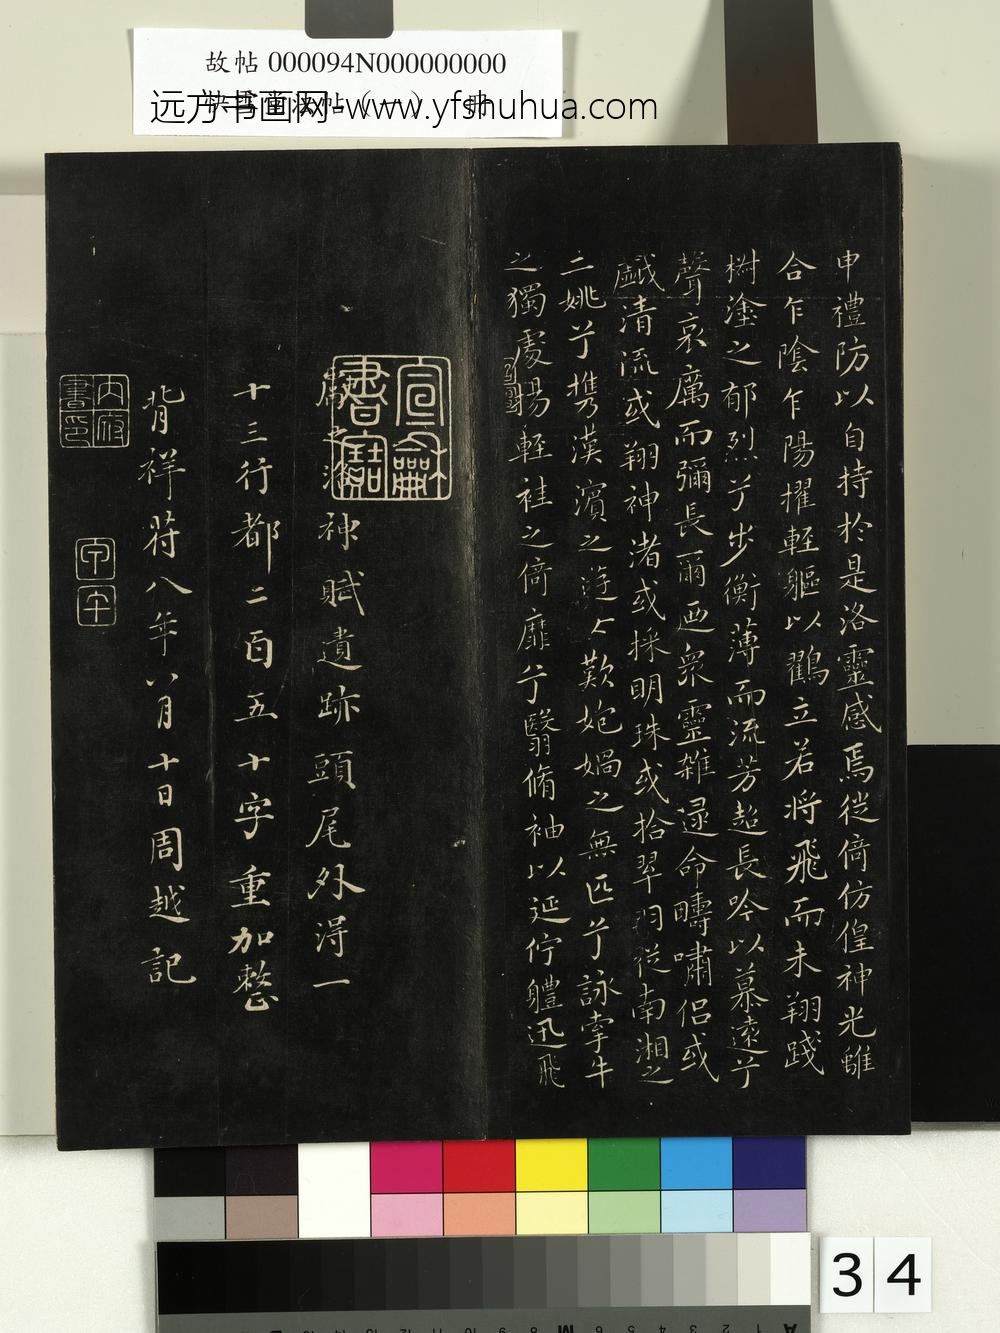 故帖 000094N000000000
远方书画网-www.yfshuhua.com
申禮防以自持於是洛靈感焉徙倚仿偟神光離
合乍陰乍陽擢輕軀以鶴立若將飛而未翔踐
樹塗之郁烈兮步衡薄而流芳超長吟以慕遠兮
聲哀厲而彌長爾迺眾靈雜遝命疇嘯侶或
戲清流或翔神渚或採明珠或拾翠羽從南湘之
二姚兮攜漢濱之遊女歎匏媧之無匹兮詠牽牛
之獨處揚輕袿之倚靡兮翳脩袖以延佇體迅飛
宣龢書寶
之洛神賦遺跡頭尾外得一
十三行都二百五十字重加整
背祥符八年八月十日周越記
內府書印
34